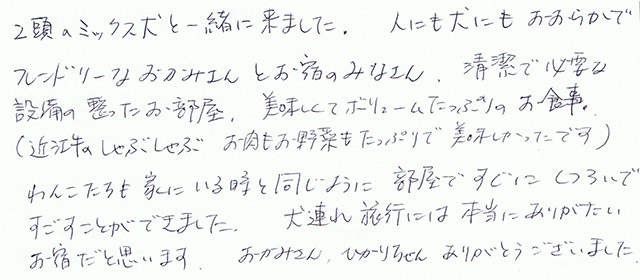 2頭のミックス犬と一緒に来ました。 人にも犬にもおおらかで
フレンドリーなおかみさんとお宿のみなさん、清潔で必要な
設備の整ったお部屋、美味しくてボリュームたっぷりのお食事。
(近江牛のしゃぶしゃぶ お肉もお野菜もたっぷりで美味しかったです)
わんこたちも家にいる時と同じように部屋ですぐにくつろいで
すごすことができました。 犬連れ旅行には本当にありがたい
お宿だと思います。 おかみさん、ひかりちゃんありがとうございました